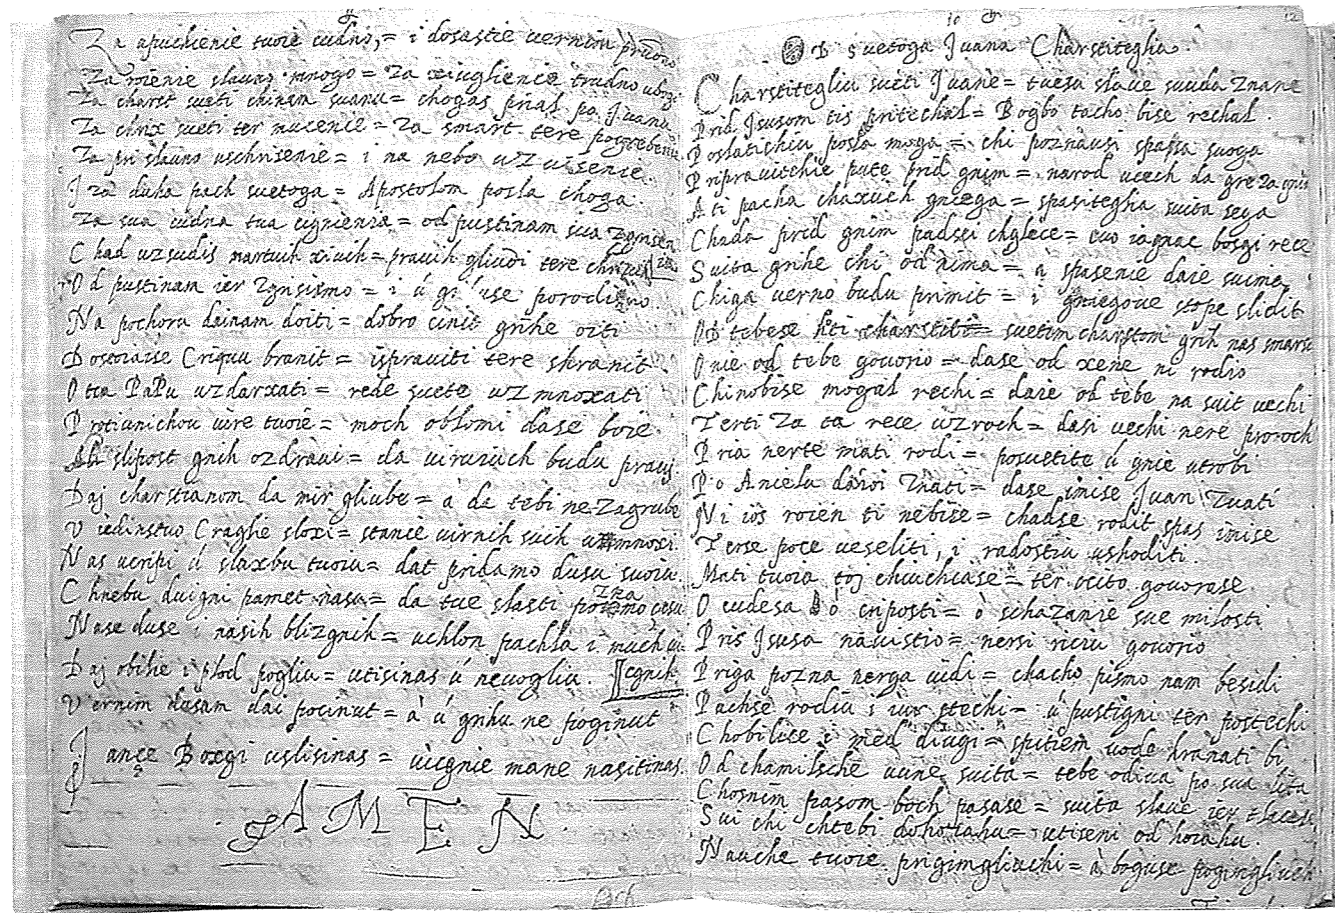 Za apuchienie tvoie cudno, = i dosastie vernim
Za roienie slavno mnogo = Za xivglienie trudno ubogo
Za charst sveti chinam svanu = chogas priat po Jvanu
Za chrix sveti ter mucenie = Za smart tere pogrebenie
Za pri slavno uschrisenie = i na nebo uzvisenie.
J za duha pach svetoga = Apostolom posla choga.
Za sva cudna tva cignienia = od pustinam sva
Chad uzsudis martvih xivih = pravih gliudi tere
Od pustinam ier Zgrisismo = i ú
Na pochoru dainam doiti = dobro cinit grihe oiti
Dostoiaise Criquu branit = ispraviti tere shranit
Otca PaPu uzdarxati = rede svete uzmnoxati
Protivnichou vire tvoie = moch oblomi dase boie.
Ali slipost gnih ozdravi = da viruiuch budu pravi
Daj charstianom da mir gliube = a da tebi ne Zagrube
V iedinstvo Craglie sloxi = stanie virnih svih uzmnoxi
Nas ucripi ú slaxbu tvoiu = dat pridamo dusu svoiu
Chnebu duigni pamet nasu = da tve slasti
Nase duse i nasih blizgnih = uchlon pachla i much
Daj obilie i plod pogliu = utisinas ú nevogliu.
Vernim dusam dai pocinut = à ú grihu ne poginut
Jance Boxgi uslisinas = vicgnie mane nasitinas.
AMEN
10 12
OD Svetoga Jvana Charstiteglia.
Charstitegliu sveti Jvane = tvesa slave svuda Znane
Prid Jsusom tis pritechal = Bogbo tacho bise rechal.
Poslatichiu posla moga = chi poznavsi spassa svoga
Pripravitchie pute prid gnim = narod vech da gre za gnim
A ti pacha chaxuch gniega = spasiteglia svita sega
Chada prid gnim padsci chglece = evo iagnac bosgi rece
Svita grihe chi od nima = a spasenie daie svime
Chiga verno budu primit = i gniegove stope slidit
OD tebese hti charstiti = svetim charstom grih nas smarsi
Onie od tebe govorio = dase od xene ni rodio
Chinobise mogal rechi = daie od tebe na svit vechi
Terti Za ta rece uzroch = dasi vechi nere proroch
Pria nerte mati rodi = posvetite ú gnie utrobi
Po Anielu daroi Znati = dase imise Jvan Zvati
Ni ios roien ti nebise = chadse rodit spas imise
Terse poce veseliti, i radostiu ushoditi.
Mati tvoia toj chuchiase = ter ocito govorase
O cudesa ó criposti = ò schazanie sve milosti
Pris Jsusa navistio = nersi riciu govorio
Priga pozna nerga vidi = chacho pismo nam besidi
Pachse rodiu i iur stechi = ú pustigni ter postechi
Chobilice i med diugi = spitiem vode hranati bi
Od chamilsche vune svita = tebe odiva po sva lita
Chosnim pasom boch pasase = svita slave
Svi chi chtebi dohoiahu = utiseni od hoiahu.
Nauche tvoie prigimgliuchi = à boguse pogimgliuch